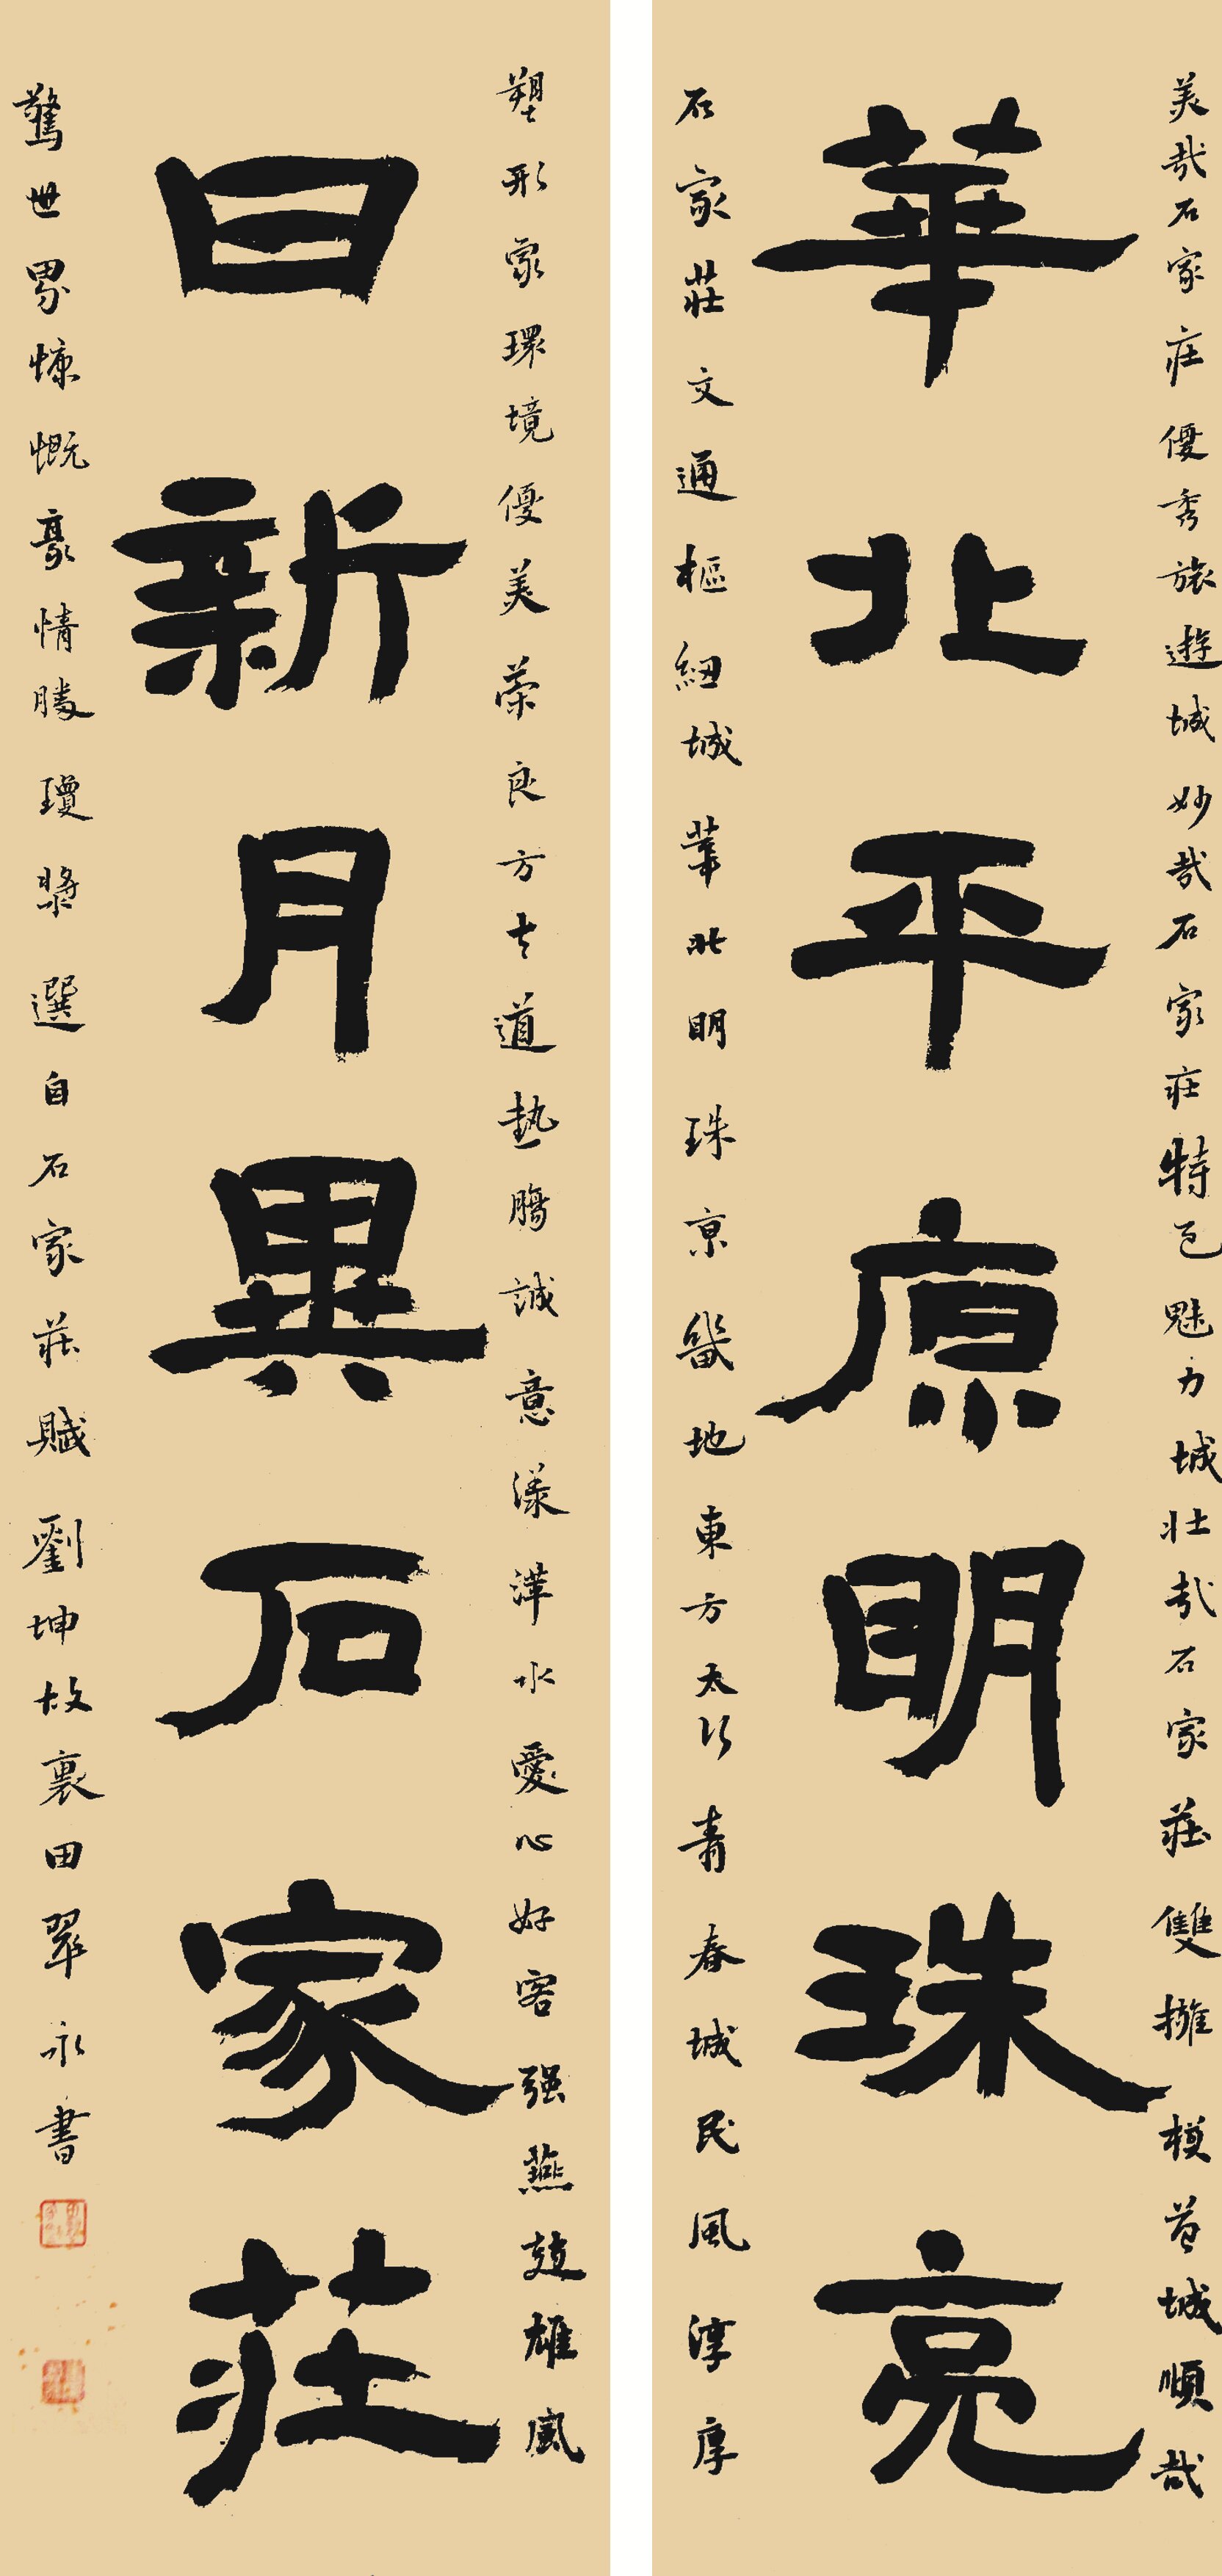 美哉石家莊優秀旅遊城妙哉石家莊特色魅力城壯哉石家莊雙擁模范城順哉
華北平原明珠亮
石家莊文通樞紐城華北明珠京畿地東方太行青春城民風淳厚
塑形象環境優美榮良方大道熱腸誠意漾洋水愛心好客强燕趙雄風
日新月異石家莊
驚世界慷慨豪情勝瓊漿選自石家莊賦劉坤故裏田翠永書